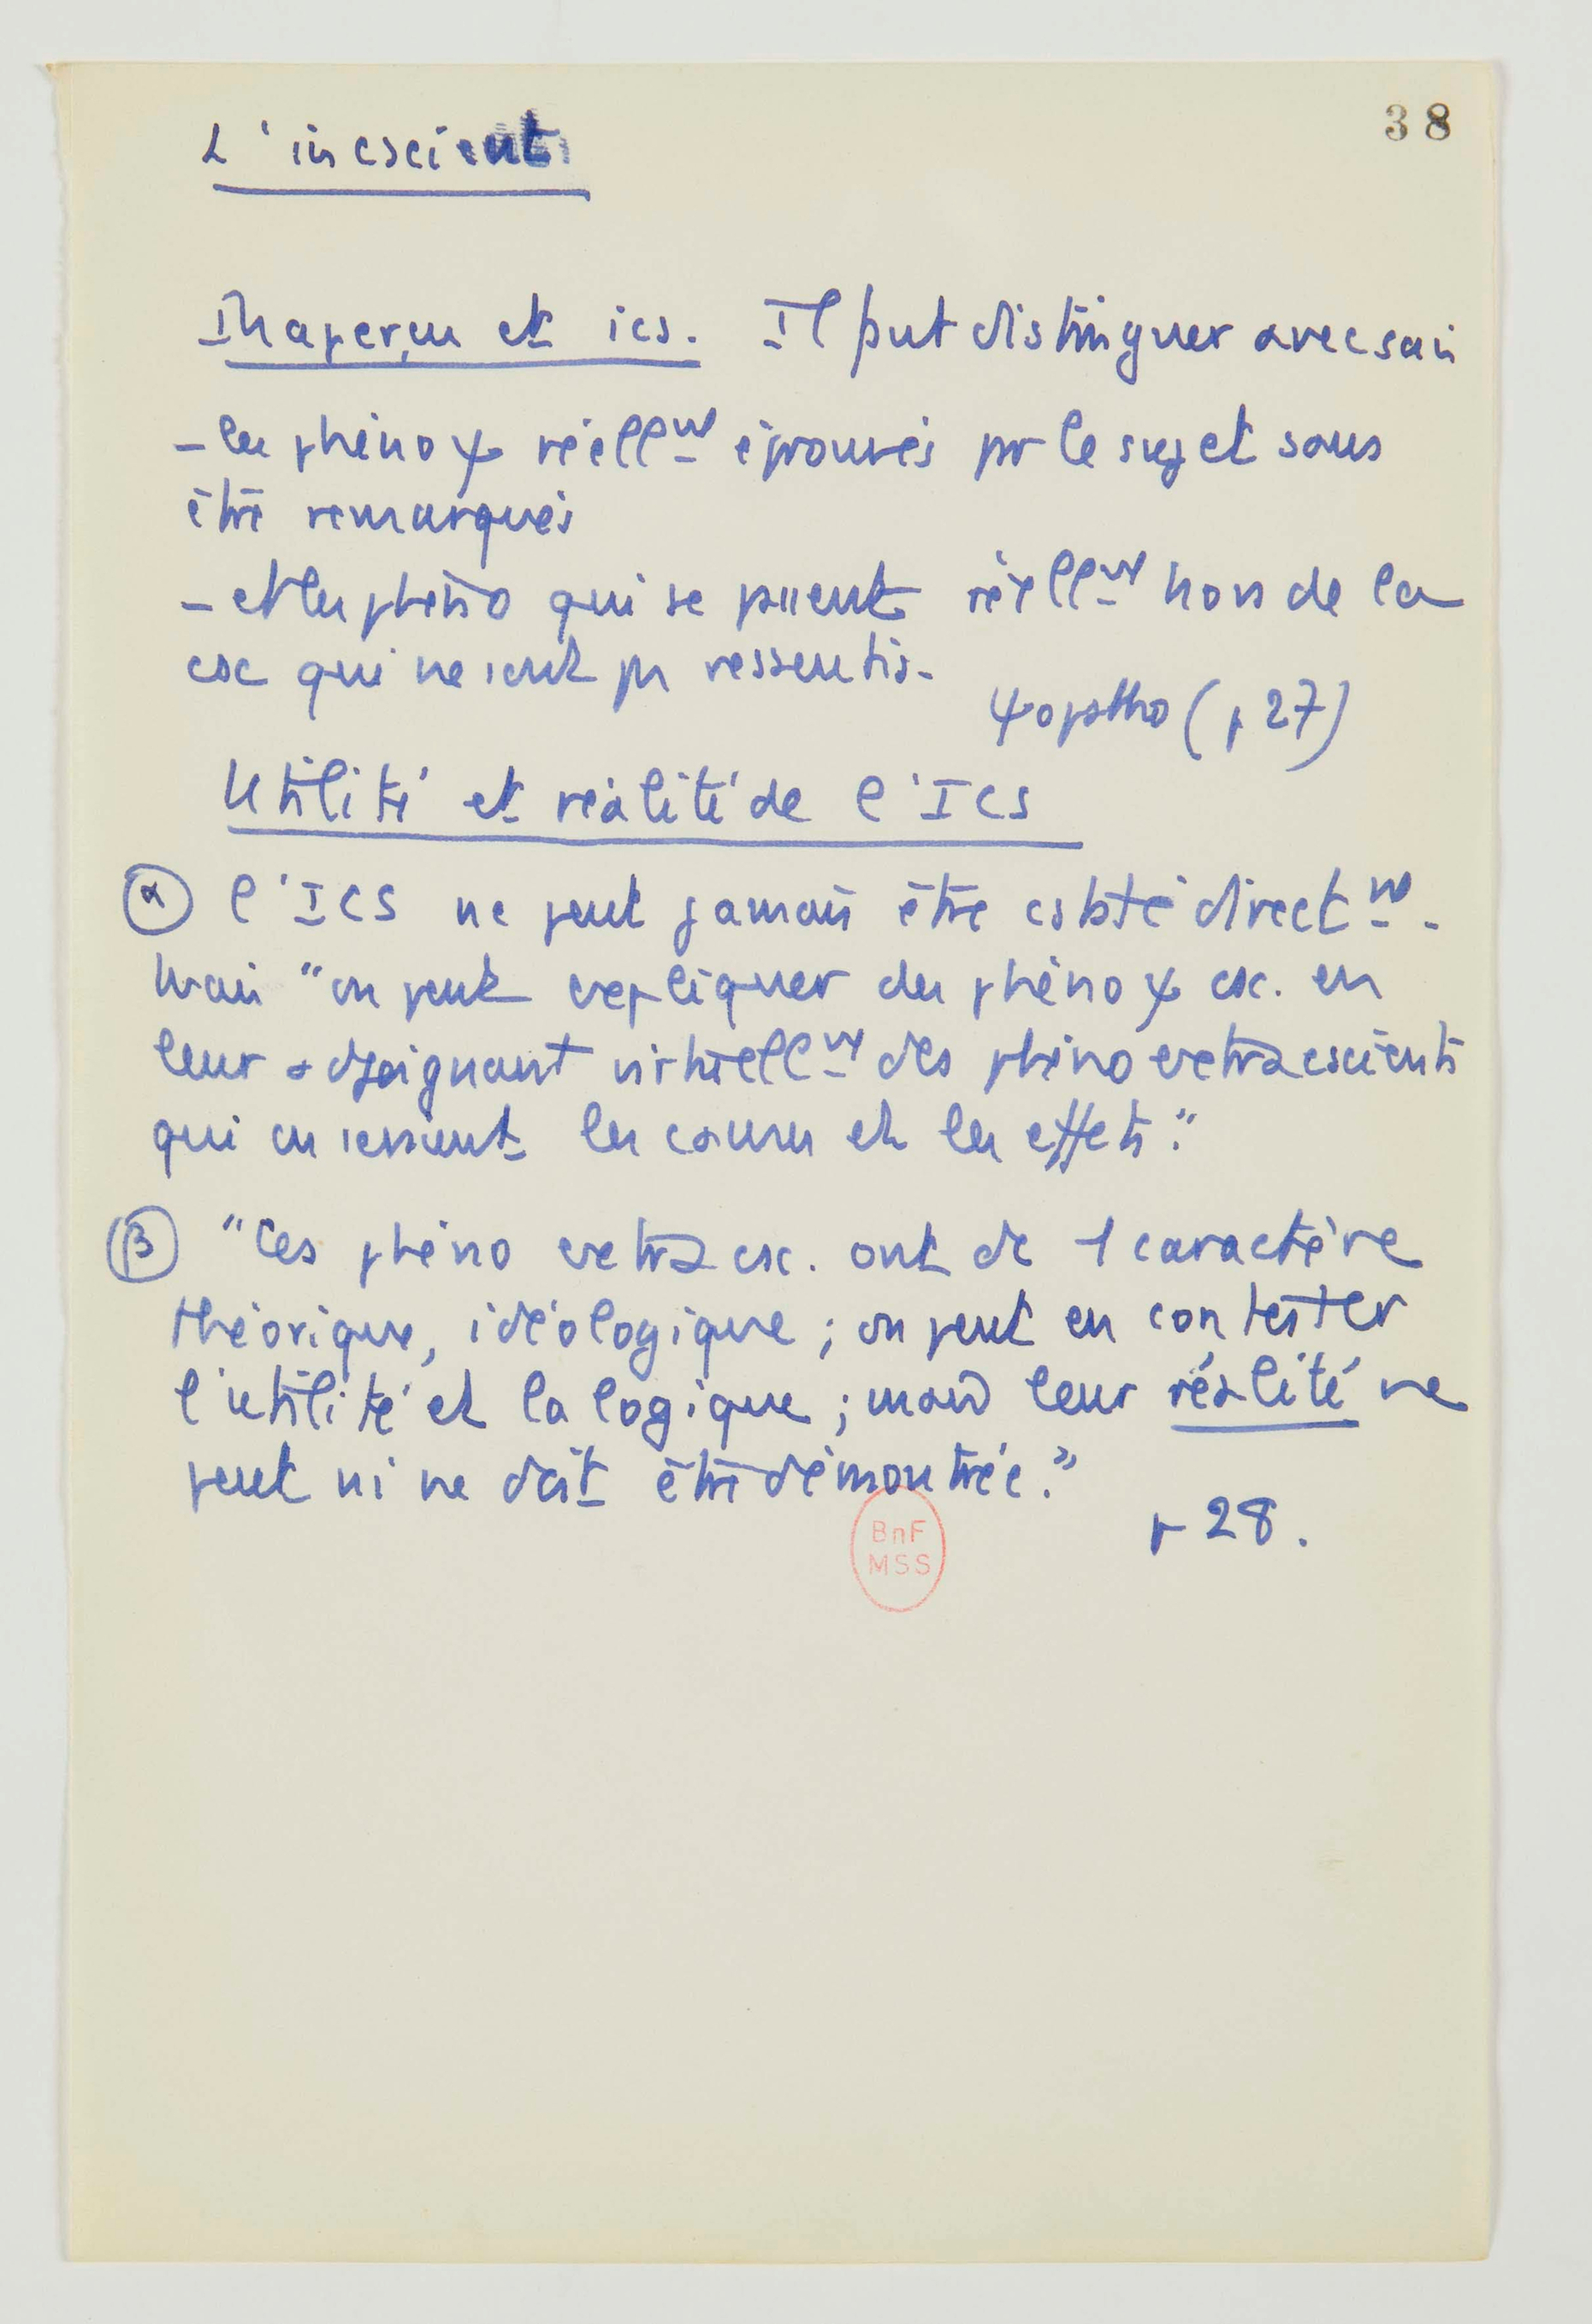 38
L'incscient
Inaperçu et ics. Il faut distinguer avec soin
- les phéno ψ réellmt éprouvés par le sujet sans
être remarqués
- et les phéno qui se passent réellmt hors de la
csc qui ne sont pas ressentis.
ψopatho (p 27)
Utilité et réalité de l'ICS
α l'ICS ne peut jamais être cstaté directmt.
Mais "on peut expliquer des phéno ψ csc. en
leur adjoignant virtuellmt des phéno extracscients
qui en seraient les causes et les effets."
β "Ces phéno extra csc. ont dc 1 caractère
théorique, idéologique ; on peut en contester
l'utilité et la logique ; mais leur réalité ne
peut ni ne doit être démontrée."
p 28.
BnF
MSS